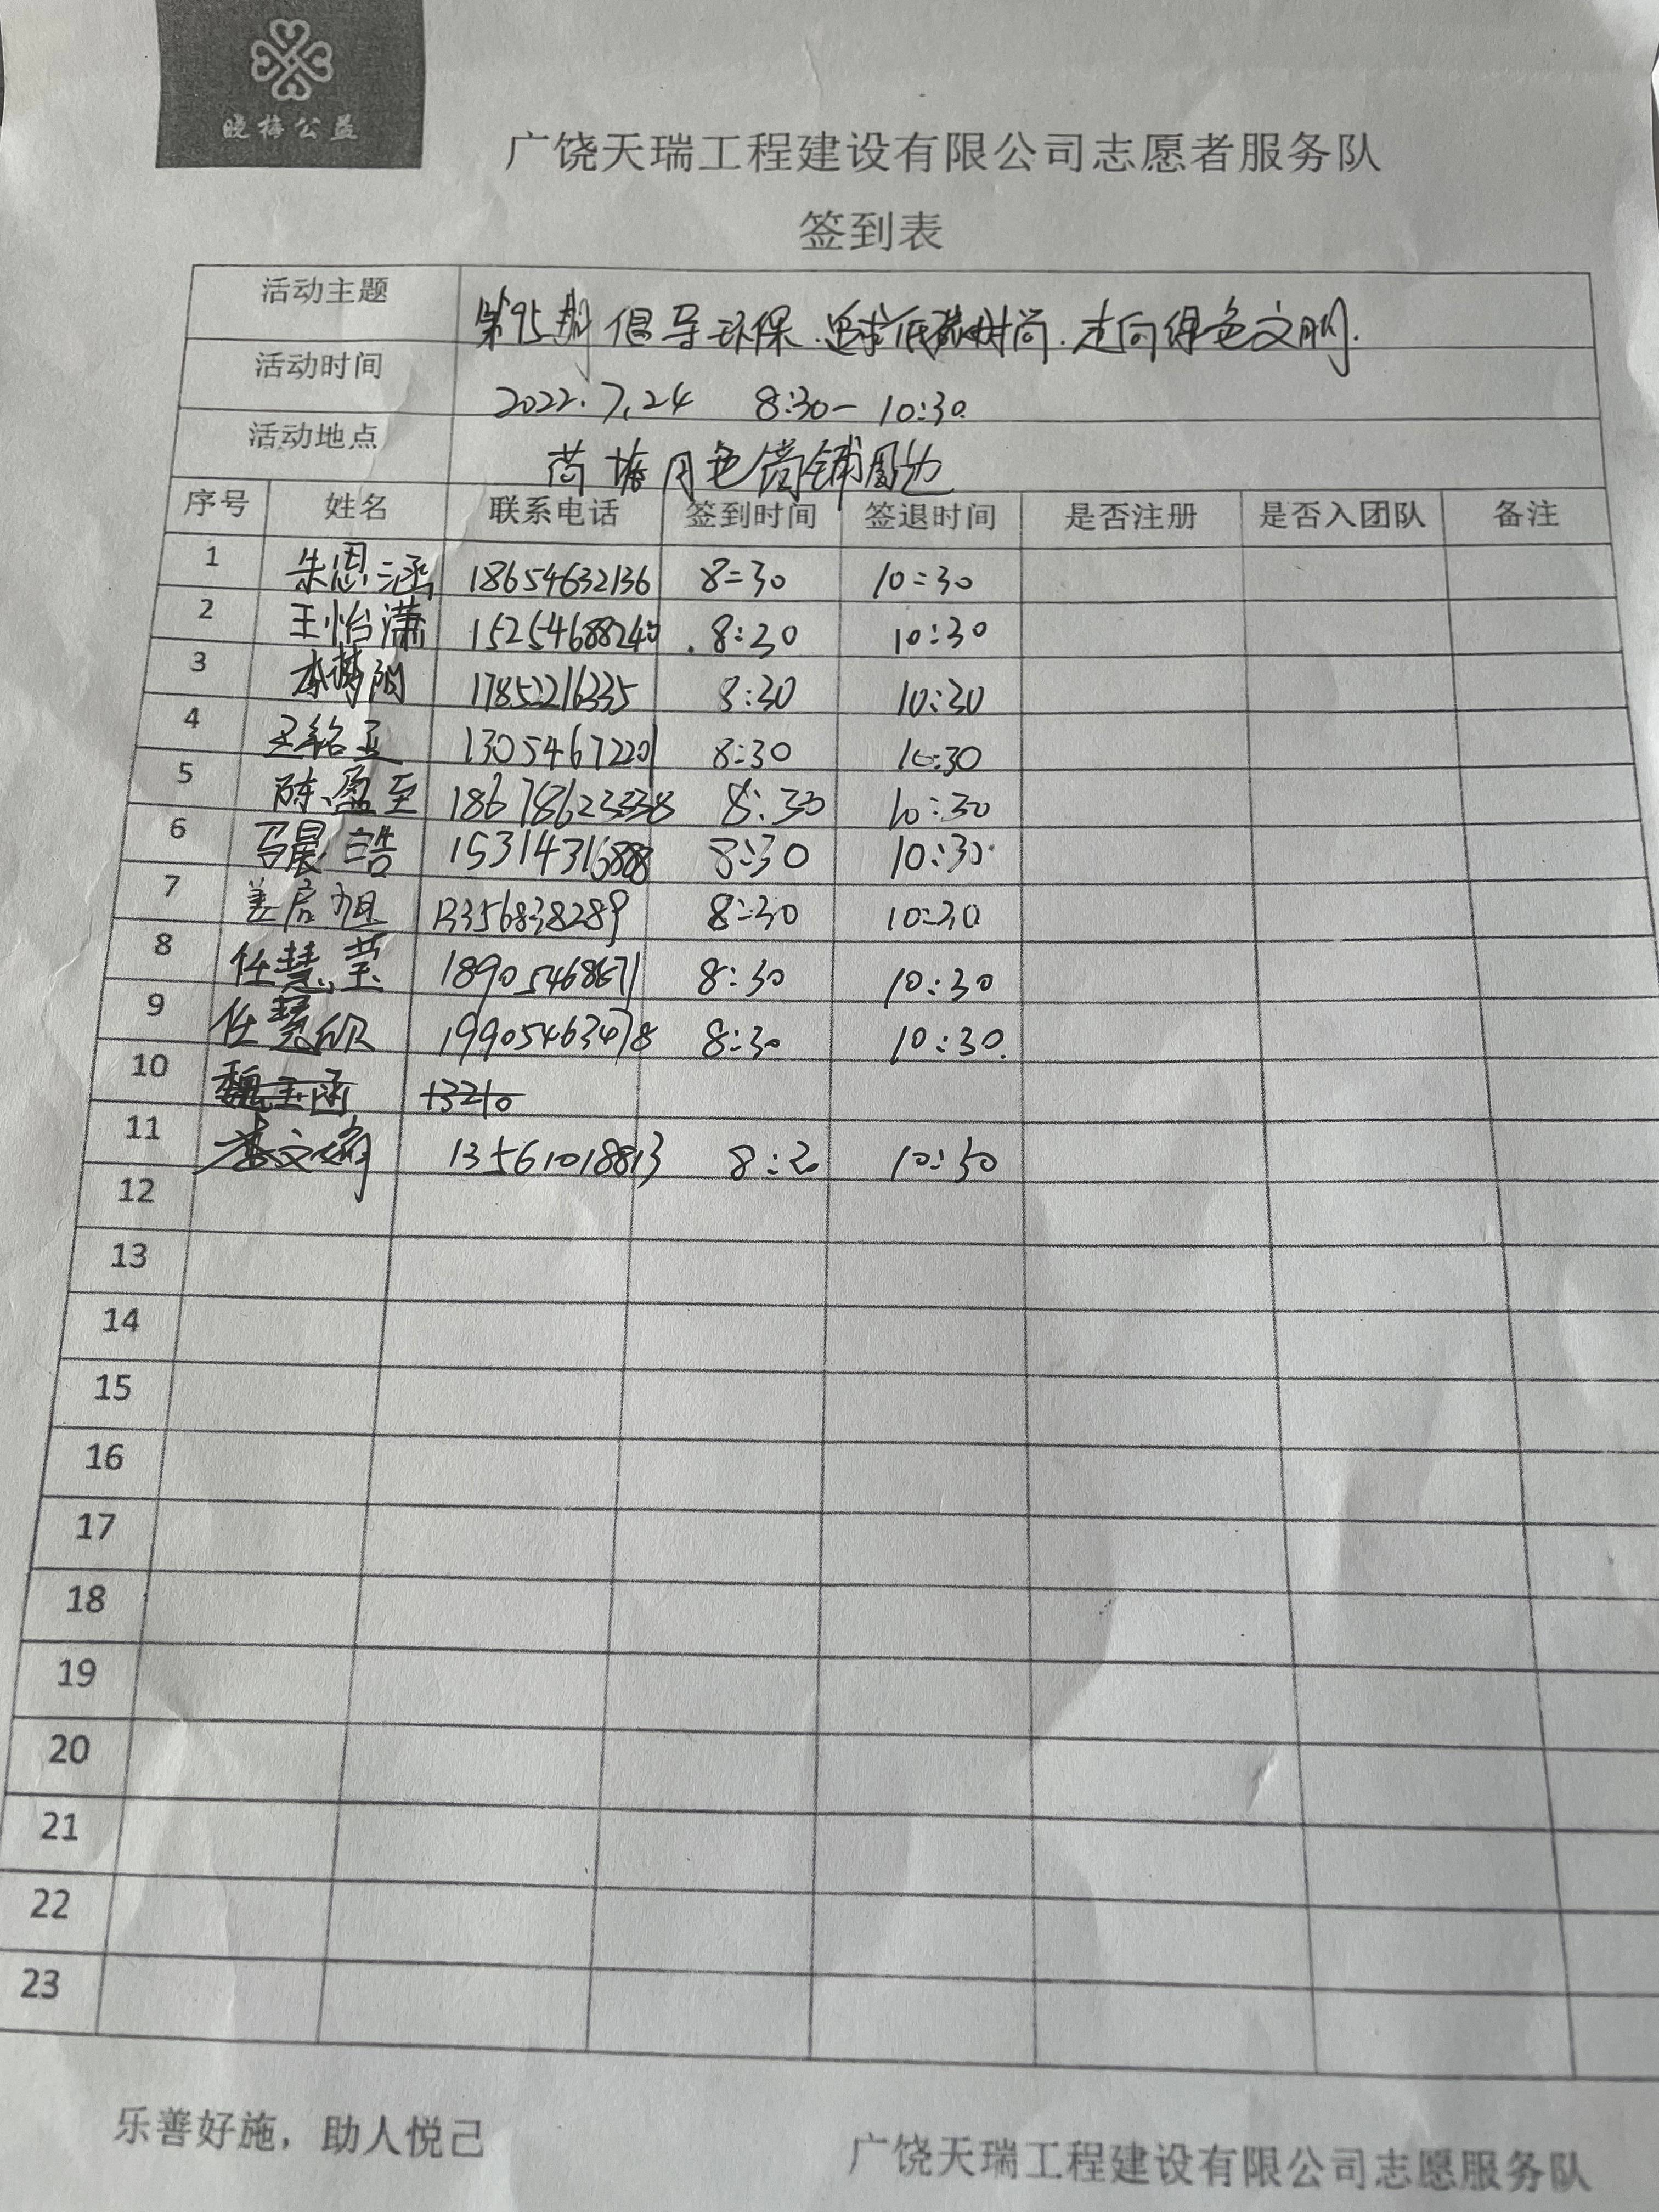 晓梅公益
广饶天瑞工程建设有限公司志愿者服务队
签到表
活动主题 第95期 倡导环保.追求低碳时尚.走向绿色文明.
活动时间 2022.7.24 8:30-10:30
活动地点 荷塘月色商铺周边
序号 姓名 联系电话 签到时间 签退时间 是否注册 是否入团队 备注
1 朱思涵 18654632136 8:30 10:30
2 王怡潇 15254688240 8:30 10:30
3 李梦阳 17852216335 8:30 10:30
4 王铭亚 13054672201 8:30 10:30
5 陈盈至 18678623338 8:30 10:30
6 马晨皓 15314316888 8:30 10:30
7 13356838289 8:30 10:30
8 任慧莹 18905468671 8:30 10:30
9 任慧欣 19905463478 8:30 10:30
10 魏玉函 13210
11 李文 13561018813 8:30 10:30
12
13
14
15
16
17
18
19
20
21
22
23
乐善好施，助人悦己
广饶天瑞工程建设有限公司志愿服务队